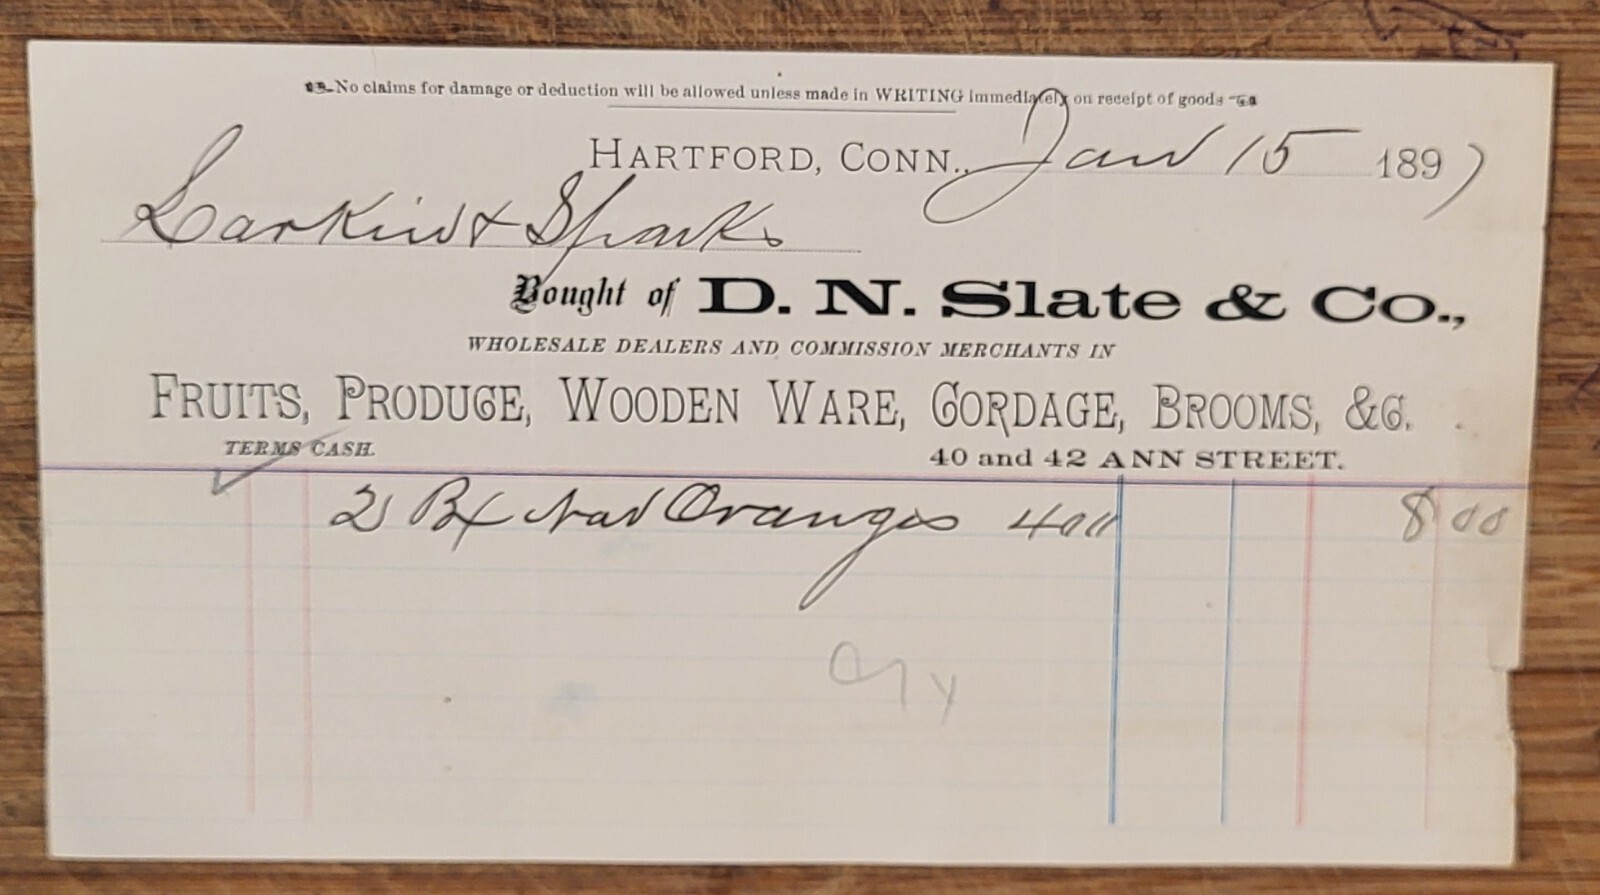 No claims for damage or deduction will be allowed unless made in WRITING immediately on receipt of goods
HARTFORD, CONN., Jan 15 1897
Larkin & Sparks
Bought of D. N. Slate & Co.,
WHOLESALE DEALERS AND COMMISSION MERCHANTS IN
FRUITS, PRODUCE, WOODEN WARE, CORDAGE, BROOMS, &C.
TERMS CASH.
40 and 42 ANN STREET.
2 Bx Nav Oranges 400 8 00